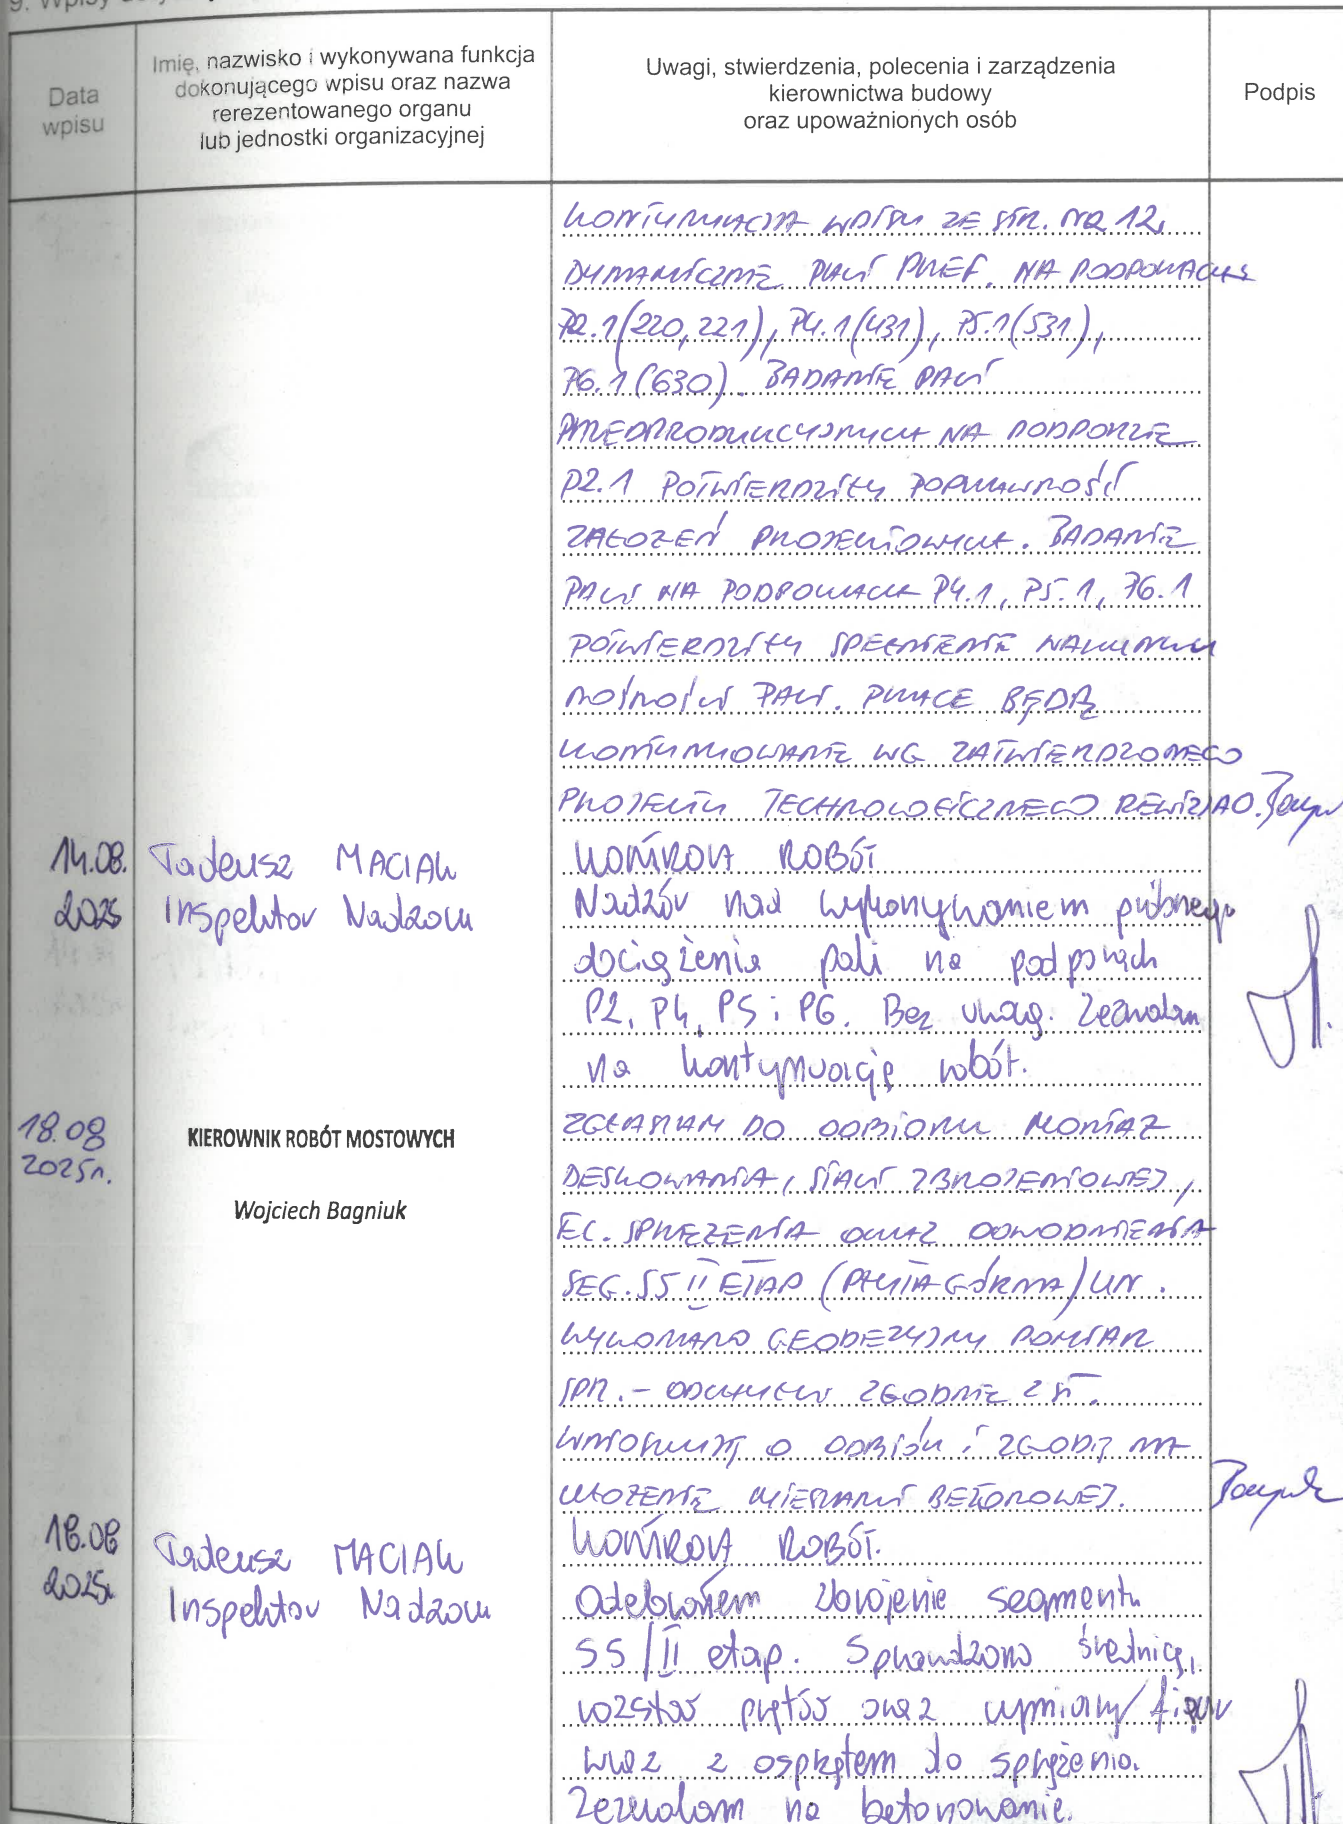 9. Wpisy
Data
wpisu
Imię, nazwisko i wykonywana funkcja
dokonującego wpisu oraz nazwa
rerezentowanego organu
lub jednostki organizacyjnej
Uwagi, stwierdzenia, polecenia i zarządzenia
kierownictwa budowy
oraz upoważnionych osób
Podpis
KONTYNUACJA WPISU ZE STR. NR 12.
DYNAMICZNE PALI PREF. NA PODPORACH
P2.1 (220, 221), P4.1 (431), P5.1 (531),
P6.1 (630). BADANIE PALI
PRZEDPRODUKCYJNYCH NA PODPORZE
P2.1 POTWIERDZIŁY POPRAWNOŚĆ
ZAŁOŻEŃ PROJEKTOWYCH. BADANIE
PALI NA PODPORACH P4.1, P5.1, P6.1
POTWIERDZIŁY SPEŁNIENIE WARUNKU
NOŚNOŚCI PALI. PRACE BĘDĄ
KONTYNUOWANE WG ZATWIERDZONEGO
PROJEKTU TECHNOLOGICZNEGO REWIZJA 0.
14.08.
2025
Tadeusz MACIAK
Inspektor Nadzoru
KONTROLA ROBÓT
Nadzór nad wykonywaniem próbnego
dociążenia pali na podporach
P2, P4, P5 i P6. Bez uwag. Zezwalam
na kontynuację robót.
18.08
2025r.
KIEROWNIK ROBÓT MOSTOWYCH
Wojciech Bagniuk
ZGŁASZAM DO ODBIORU MONTAŻ
DESKOWANIA, STALI ZBROJENIOWEJ,
EL. SPRĘŻENIA ORAZ ODWODNIENIA
SEG. S5 II ETAP (PŁYTA GÓRNA)
WYKONANO GEODEZYJNY POMIAR
SPR. - ODCHYŁKI ZGODNE Z ST.
WNIOSKUJĘ O ODBIÓR I ZGODĘ NA
UŁOŻENIE MIESZANKI BETONOWEJ.
18.08
2025r.
Tadeusz MACIAK
Inspektor Nadzoru
KONTROLA ROBÓT.
Odebrałem zbrojenie segmentu
S5/II etap. Sprawdzono średnicę,
rozstaw prętów oraz wymiary/figur
wraz z osprzętem do sprężenia.
Zezwalam na betonowanie.